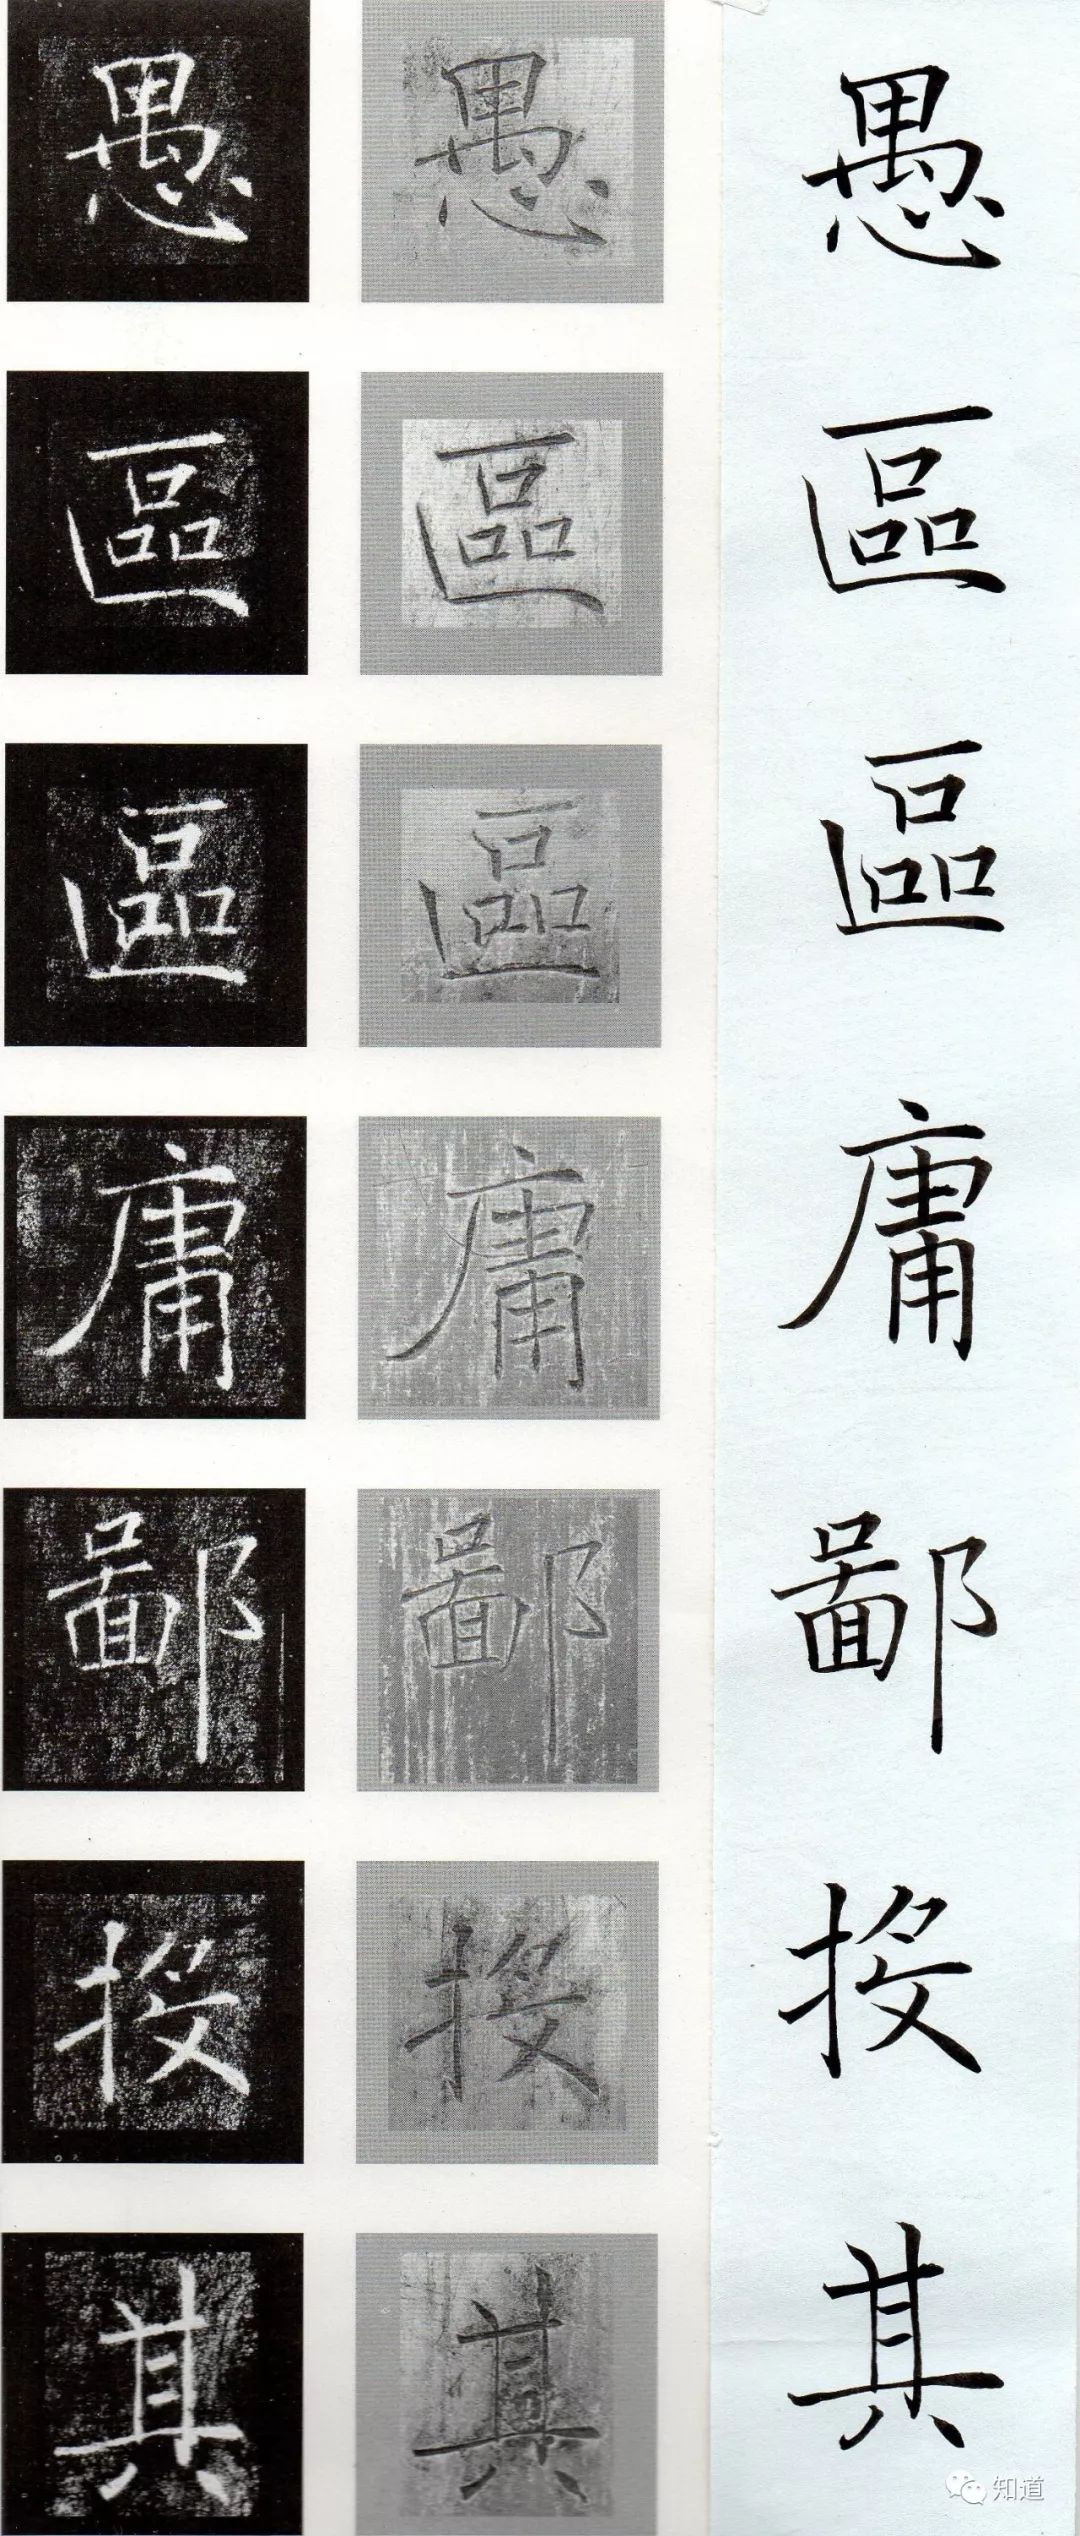 愚 愚 愚
區 區 區
區 區 區
庸 庸 庸
鄙 鄙 鄙
投 投 投
其 其 其
知道